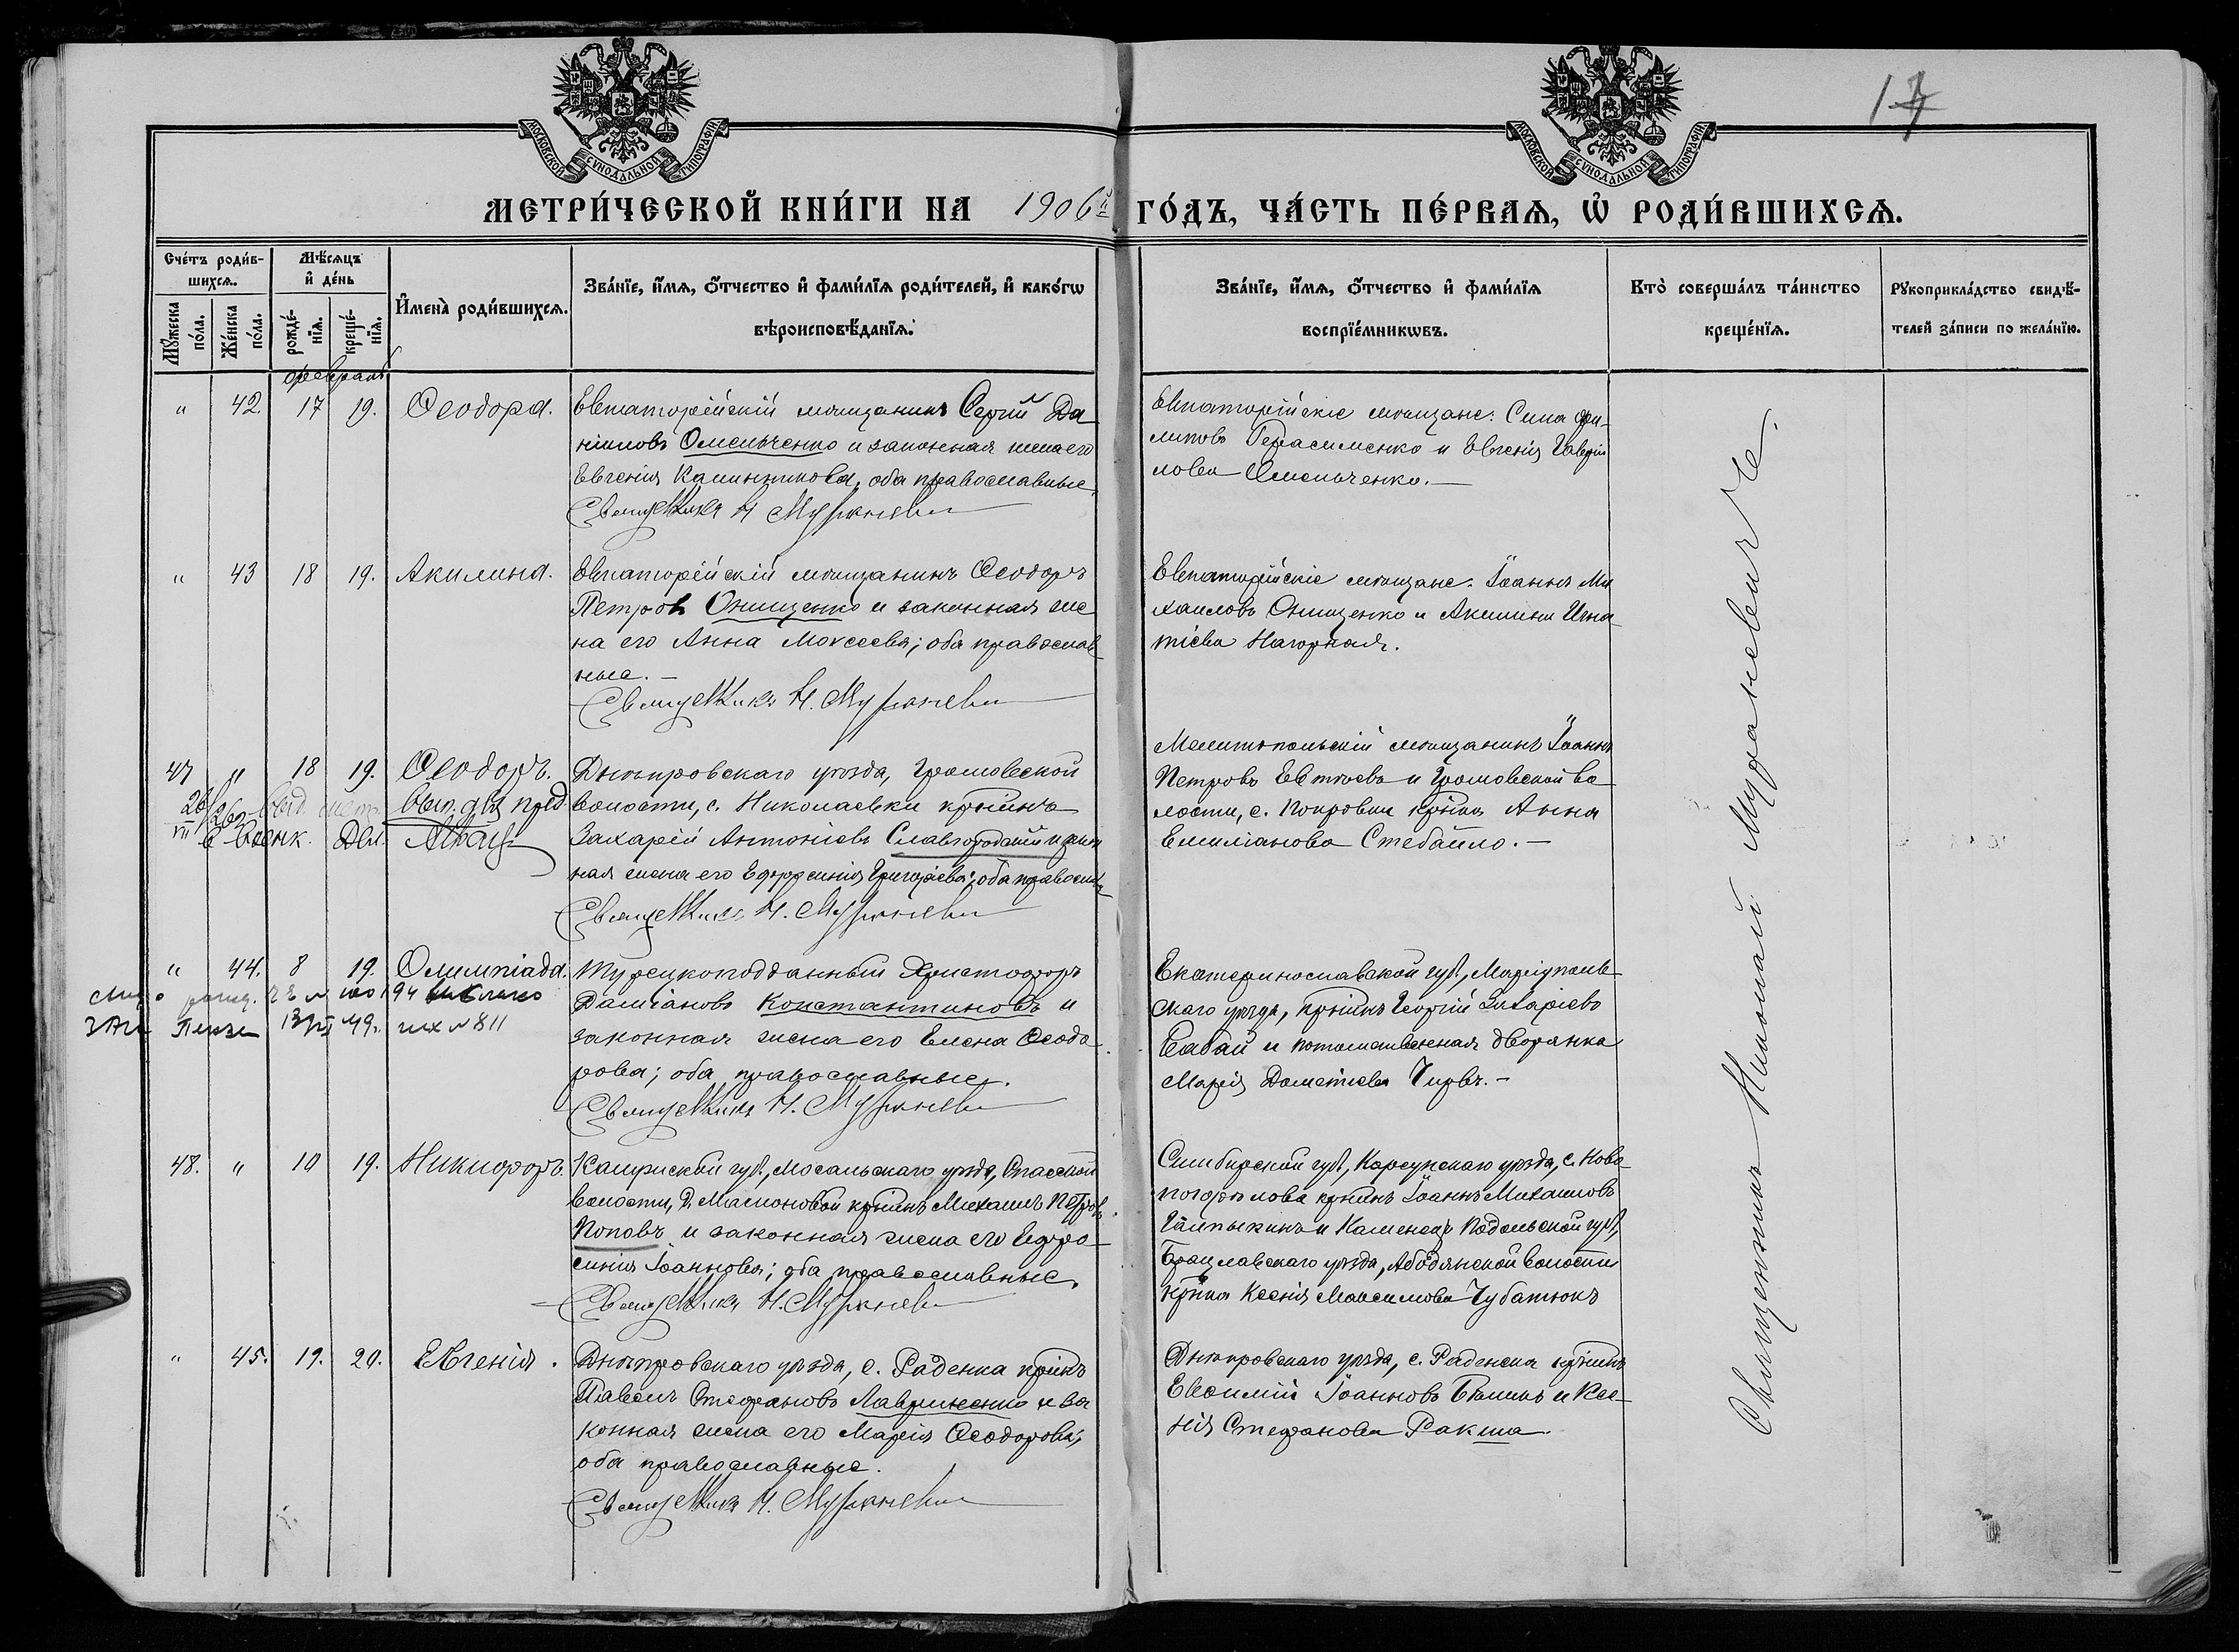 17
МОСКОВСКОЙ СѴНОДАЛЬНОЙ ТИПОГРАФІИ
МОСКОВСКОЙ СѴНОДАЛЬНОЙ ТИПОГРАФІИ
МЕТРИ́ЧЕСКОЙ КНИ́ГИ НА 1906й ГО́ДЪ, ЧА́СТЬ ПЕ́РВАЯ, Ѡ҆ РОДИ́ВШИХСѦ.
Сче́тъ роди́в-
шихсѧ.
Мꙋ́жеска по́ла.
Же́нска по́ла.
Мѣ́сѧцъ
и҆ де́нь
рожде́-нїѧ.
креще́-нїѧ.
И҆мена̀ роди́вшихсѧ.
Зва́нїе, и҆́мѧ, ѻ҆́тчество и҆ фами́лїѧ роди́телей, и҆ како́гѡ
вѣроисповѣ́данїѧ.
Зва́нїе, и҆́мѧ, ѻ҆́тчество и҆ фами́лїѧ
воспрїе́мникѡвъ.
Кто̀ соверша́лъ та́инство
креще́нїѧ.
Рꙋкоприкла́дство свидѣ́-
телей за́писи по жела́нїю.
февраль
" 42. 17 19. Ѳеодора.
Евпаторійскій мѣщанинъ Сергій Да
ніиловъ Омельченко и законная жена его
Евгенія Калинникова, оба православные.
Священникъ Н. Мураневич
Евпаторійскіе мѣщане: Сила Фи-
липовъ Герасименко и Евгенія Гавріи
лова Омельченко.
" 43 18 19. Акилина.
Евпаторійскій мѣщанинъ Ѳеодоръ
Петровъ Онищенко и законная же
на его Анна Моѵсеева; оба православ-
ные.
Священникъ Н. Мураневич
Евпаторійскіе мѣщане: Іоаннъ Ми
хаиловъ Онищенко и Акилина Игна-
тіева Нагорная.
47 " 18 19. Ѳеодоръ.
Днѣпровскаго уѣзда, Громовской
волости, с. Николаевки крнинъ
Захарій Антоніевъ Славгородскій и закон
ная жена его Евфросинія Григоріева; оба правосл.
Священникъ Н. Мураневич
Мелитопольскій мѣщанинъ Іоаннъ
Петровъ Евтѣевъ и Громовской во
лости, с. Покровки крнка Анна
Емиліанова Стебайло.
" 44. 8 19. Олимпіада.
ЗАГС Пензы 49г. № 811
Турецкоподданный Христофоръ
Даміановъ Константиновъ и
законная жена его Елена Ѳеодо
рова; оба православные.
Священникъ Н. Мураневич
Екатеринославской губ., Маріуполь-
скаго уѣзда, крнинъ Георгій Захаріевъ
Бабай и потомственная дворянка
Марія Дометіева Гирвъ.
48. " 10 19. Никифоръ.
Калужской губ., Мосальскаго уѣзда, Спасской
волости, д. Маслоновой крнинъ Михаилъ Петровъ
Поповъ и законная жена его Евфро
синія Іоаннова; оба православные.
Священникъ Н. Мураневич
Симбирской губ., Карсунскаго уѣзда, с. Ново
погорѣлова крнинъ Іоаннъ Михаиловъ
Галпыкинъ и Каменецъ Подольской губ.,
Брацлавскаго уѣзда, Ободянской волости
крнка Ксенія Максимова Чубатюкъ
" 45. 19. 20. Евгенія.
Днѣпровскаго уѣзда, с. Раденка крнинъ
Павелъ Стефановъ Лавриненко и за
конная жена его Марія Ѳеодорова;
оба православные.
Священникъ Н. Мураневич
Днѣпровскаго уѣзда, с. Раденска крнинъ
Евѳимій Іоанновъ Бѣликъ и Ксе-
нія Стефанова Ракша
Священникъ Николай Мураневичъ.